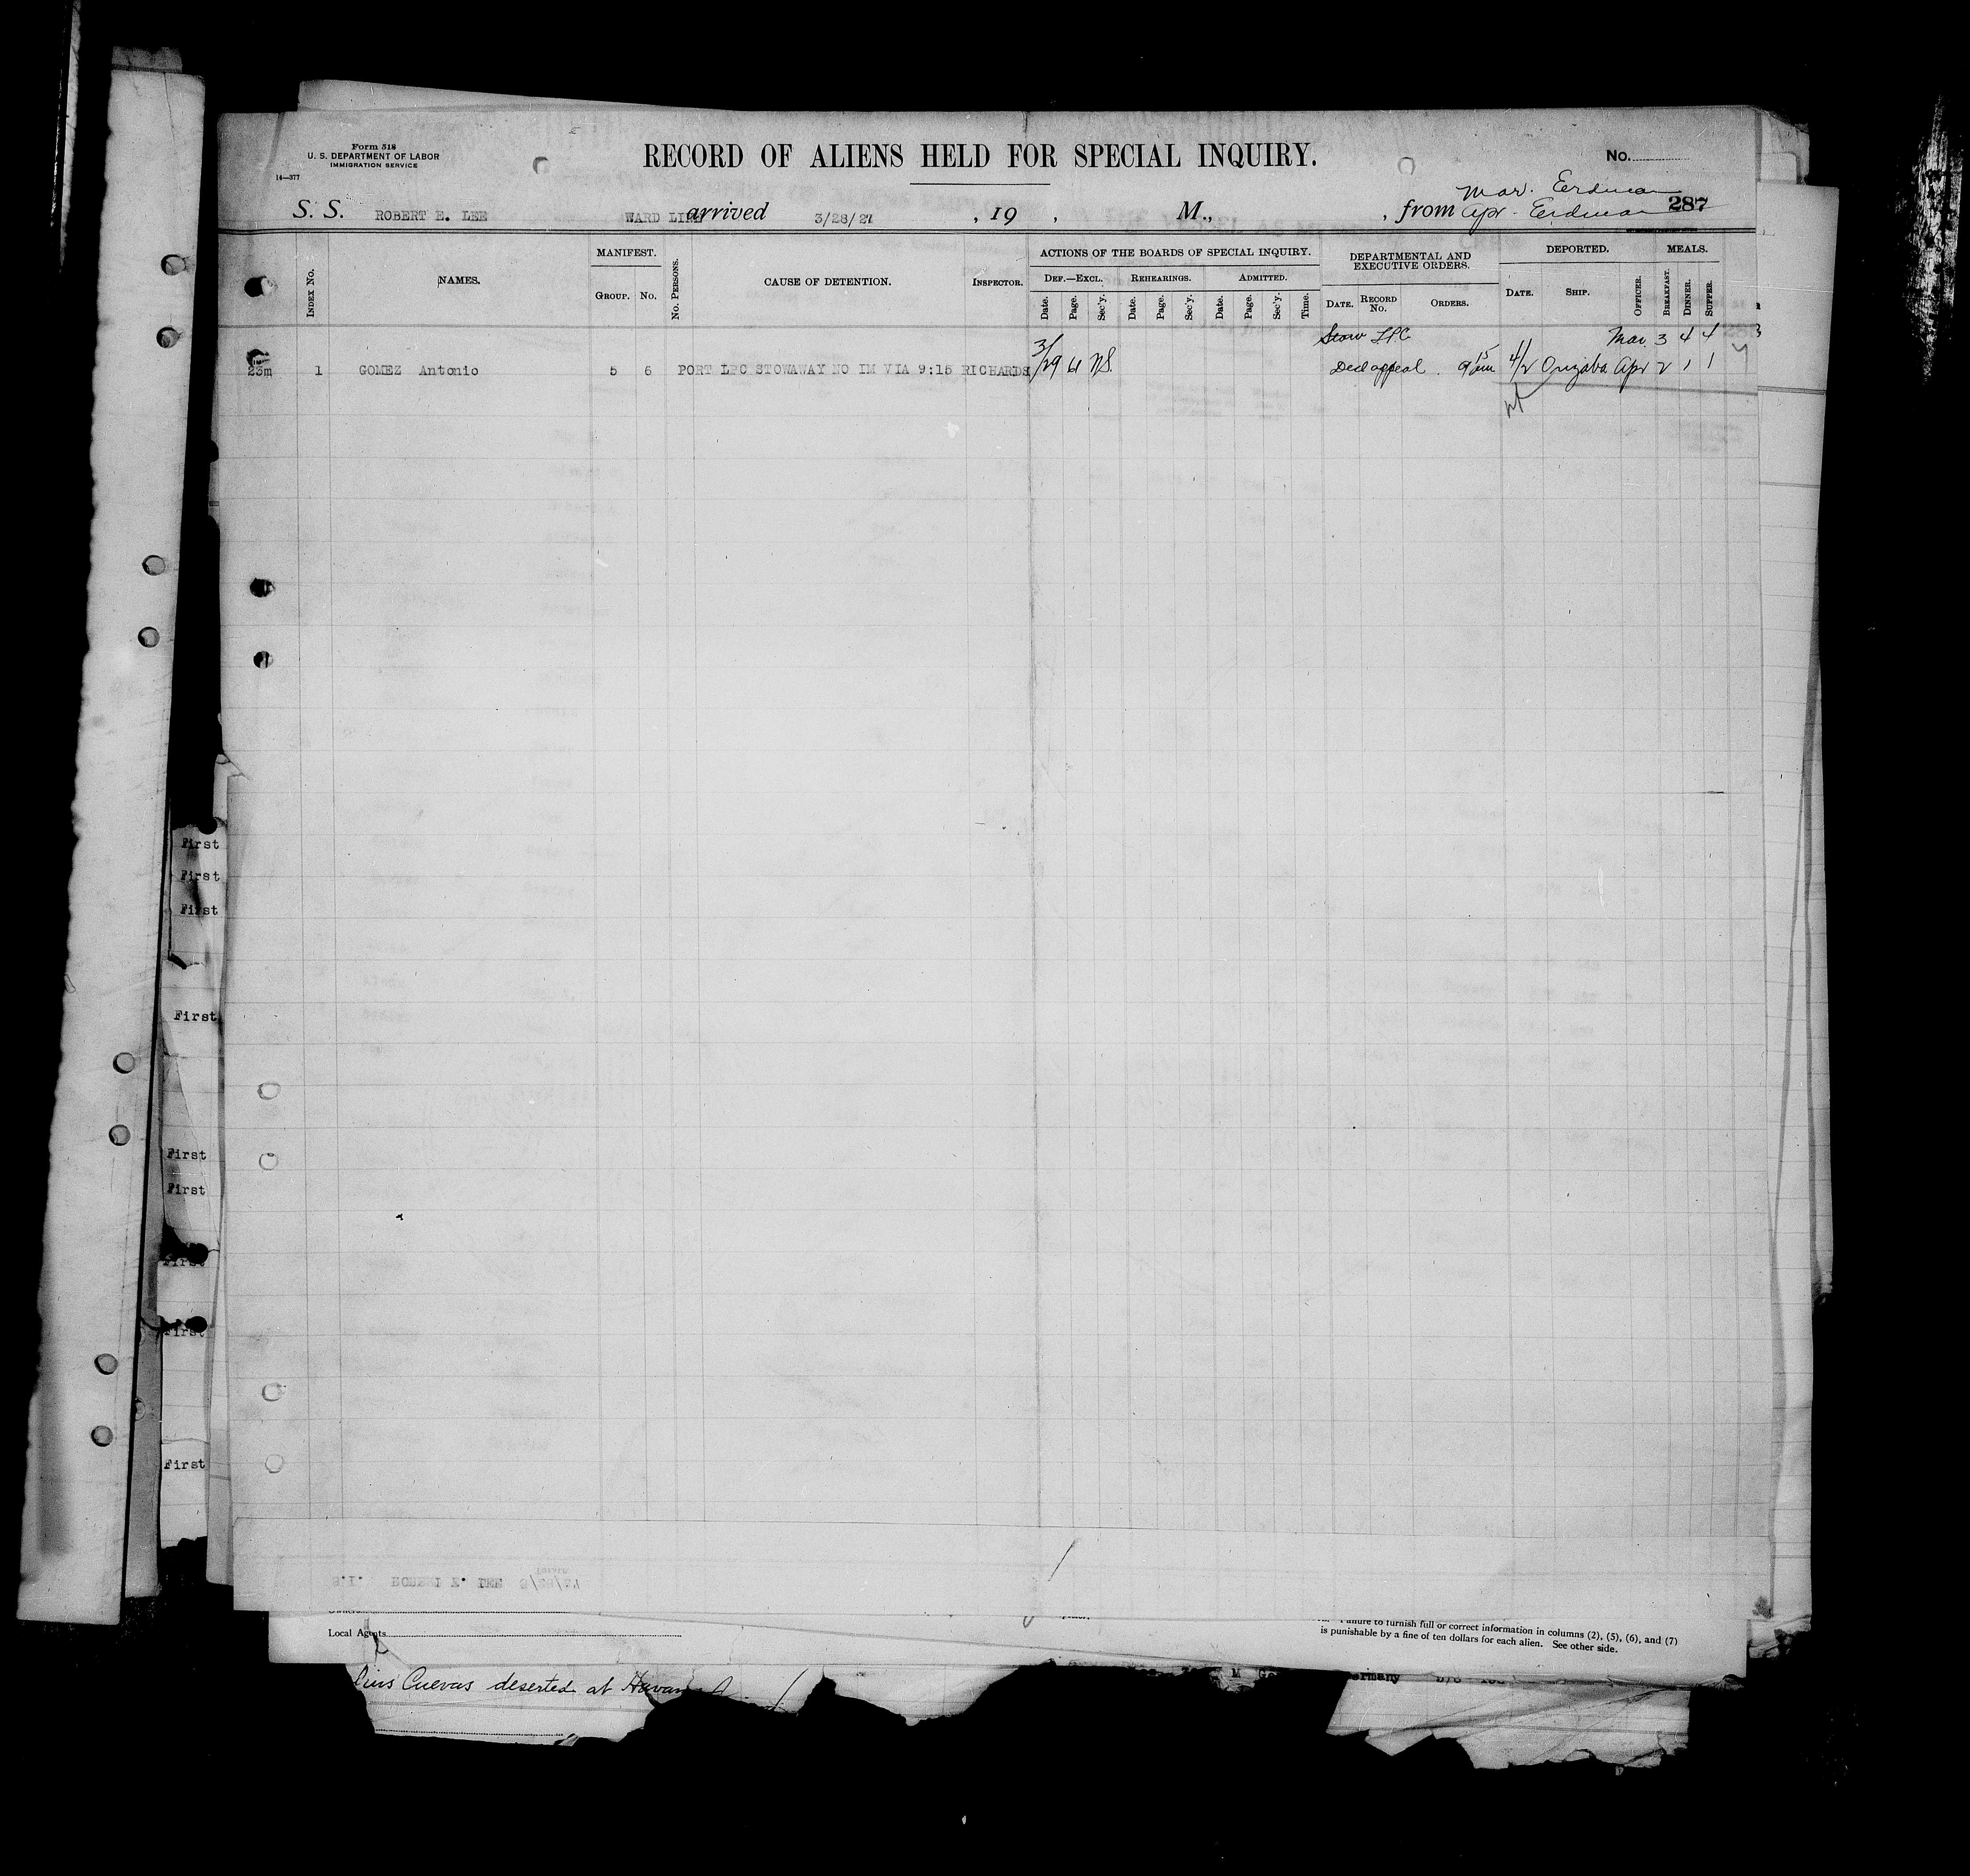 Form 518
U. S. DEPARTMENT OF LABOR
IMMIGRATION SERVICE
14—377
RECORD OF ALIENS HELD FOR SPECIAL INQUIRY.
No.
Mar. Eerdman
S. S. ROBERT E. LEE WARD LINE arrived 3/28/27, 19 , M., , from Apr. Eerdman 287
INDEX No. NAMES. MANIFEST. GROUP. No. No. PERSONS. CAUSE OF DETENTION. INSPECTOR. ACTIONS OF THE BOARDS OF SPECIAL INQUIRY. DEF.—EXCL. REHEARINGS. ADMITTED. Date. Page. Sec'y. Date. Page. Sec'y. Date. Page. Sec'y. Time. DEPARTMENTAL AND EXECUTIVE ORDERS. DATE. RECORD No. ORDERS. DEPORTED. DATE. SHIP. OFFICER. MEALS. BREAKFAST. DINNER. SUPPER.
Stow LPC Mar. 3 4 4
23m 1 GOMEZ Antonio 5 6 PORT LPC STOWAWAY NO IM VIA 9:15 RICHARDS 3/29 61 NS. Decl appeal. 9 15 am 4/2 Orizaba Apr 2 1 1
First
First
First
First
First
First
First
First
First
Local Agents
Failure to furnish full or correct information in columns (2), (5), (6), and (7)
is punishable by a fine of ten dollars for each alien. See other side.
Cuevas deserted at Havan
ermany